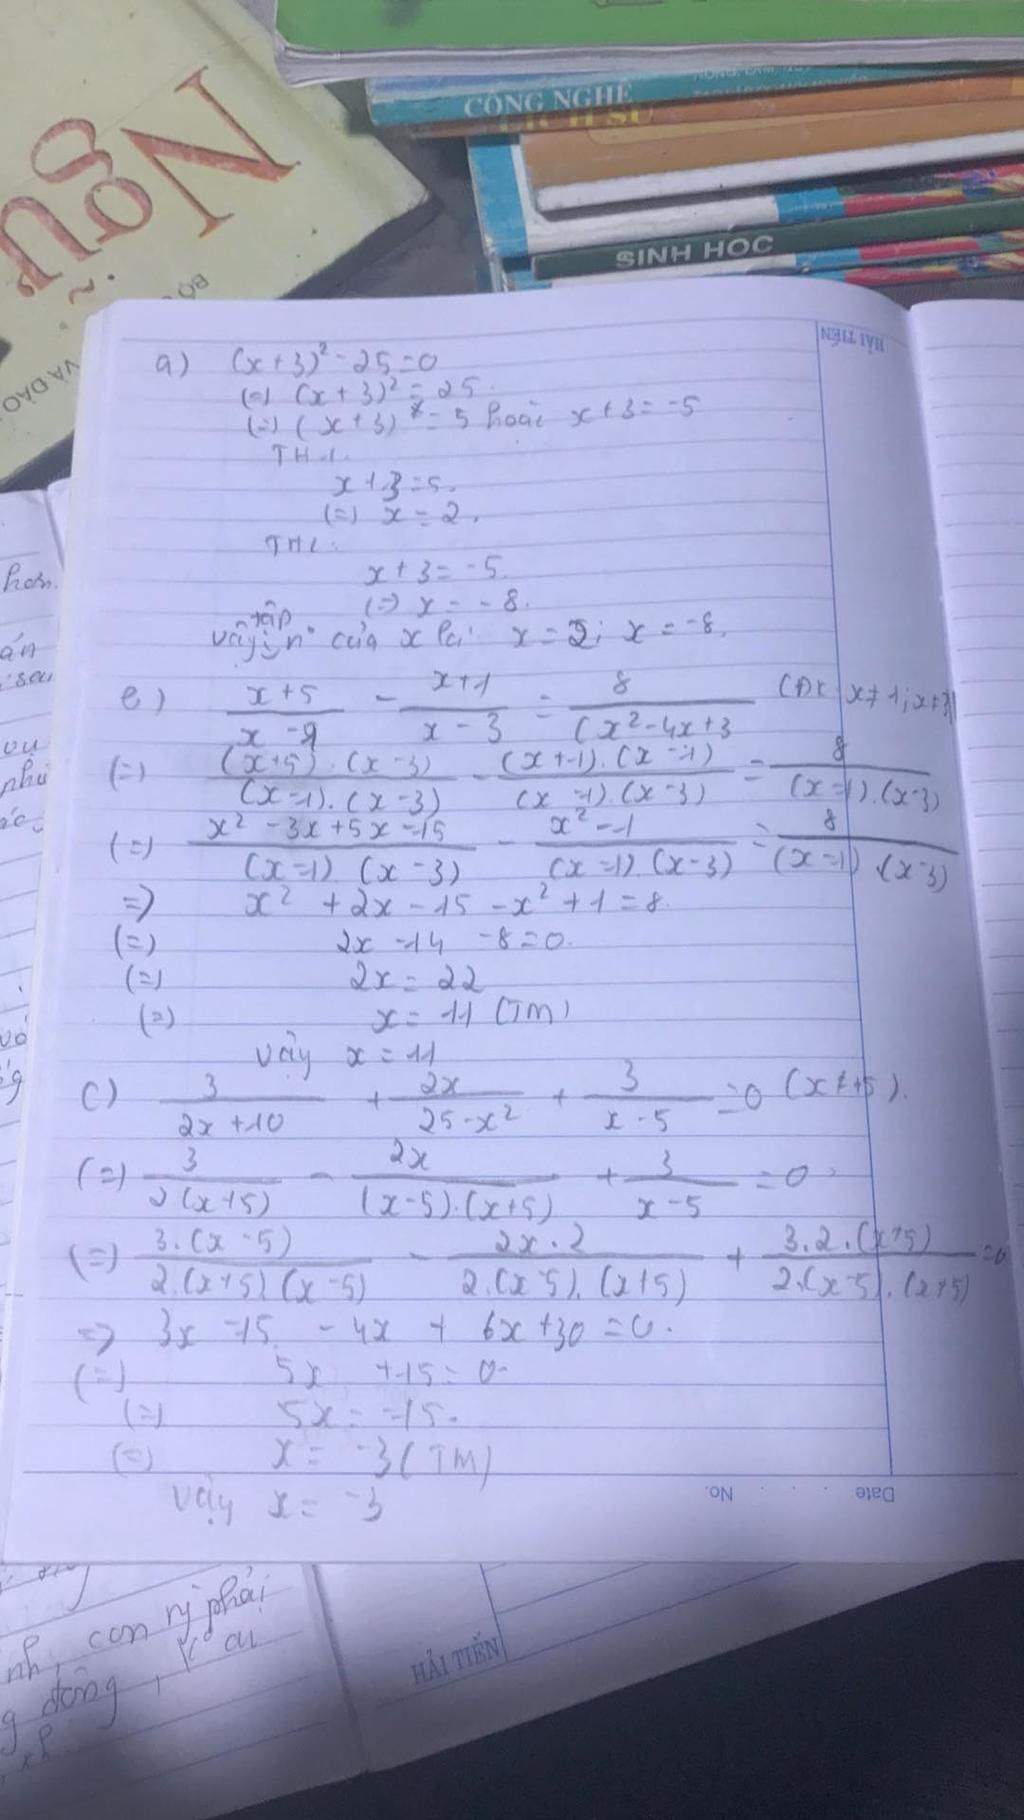 CÔNG NGHỆ
LỊCH SỬ
SINH HỌC
Ngữ
VÀ ĐÀO
HẢI TIẾN
a) (x+3)² - 25 = 0
(=) (x+3)² = 25.
(=) (x+3) = 5 hoặc x+3 = -5
TH1.
x+3 = 5.
(=) x = 2.
TH2.
x+3 = -5.
(=) x = -8.
tập
Vậy n° của x là: x = 2; x = -8.
e) (x+5)/(x-1) - (x+1)/(x-3) = 8/(x²-4x+3 (ĐK x≠1; x≠3)
(=) (x+5).(x-3)/(x-1).(x-3) - (x+1).(x-1)/(x-1).(x-3) = 8/(x-1).(x-3)
(=) x²-3x+5x-15/(x-1).(x-3) - x²-1/(x-1).(x-3) = 8/(x-1).(x-3)
=> x² +2x-15-x²+1 = 8.
(=) 2x-14 -8=0.
(=) 2x = 22
(=) x = 11 (TM)
Vậy x = 11
c) 3/(2x+10) + 2x/(25-x²) + 3/(x-5) = 0 (x≠±5).
(=) 3/2(x+5) - 2x/(x-5).(x+5) + 3/(x-5) = 0.
(=) 3.(x-5)/2.(x+5).(x-5) - 2x.2/2.(x-5).(x+5) + 3.2.(x+5)/2.(x-5).(x+5) = 0
=> 3x-15 - 4x + 6x+30 = 0.
(=) 5x +15 = 0
(=) 5x = -15.
(=) x = -3 (TM)
Vậy x = -3
Date No.
hơn.
nh, con rị phải
g động,
HẢI TIẾN